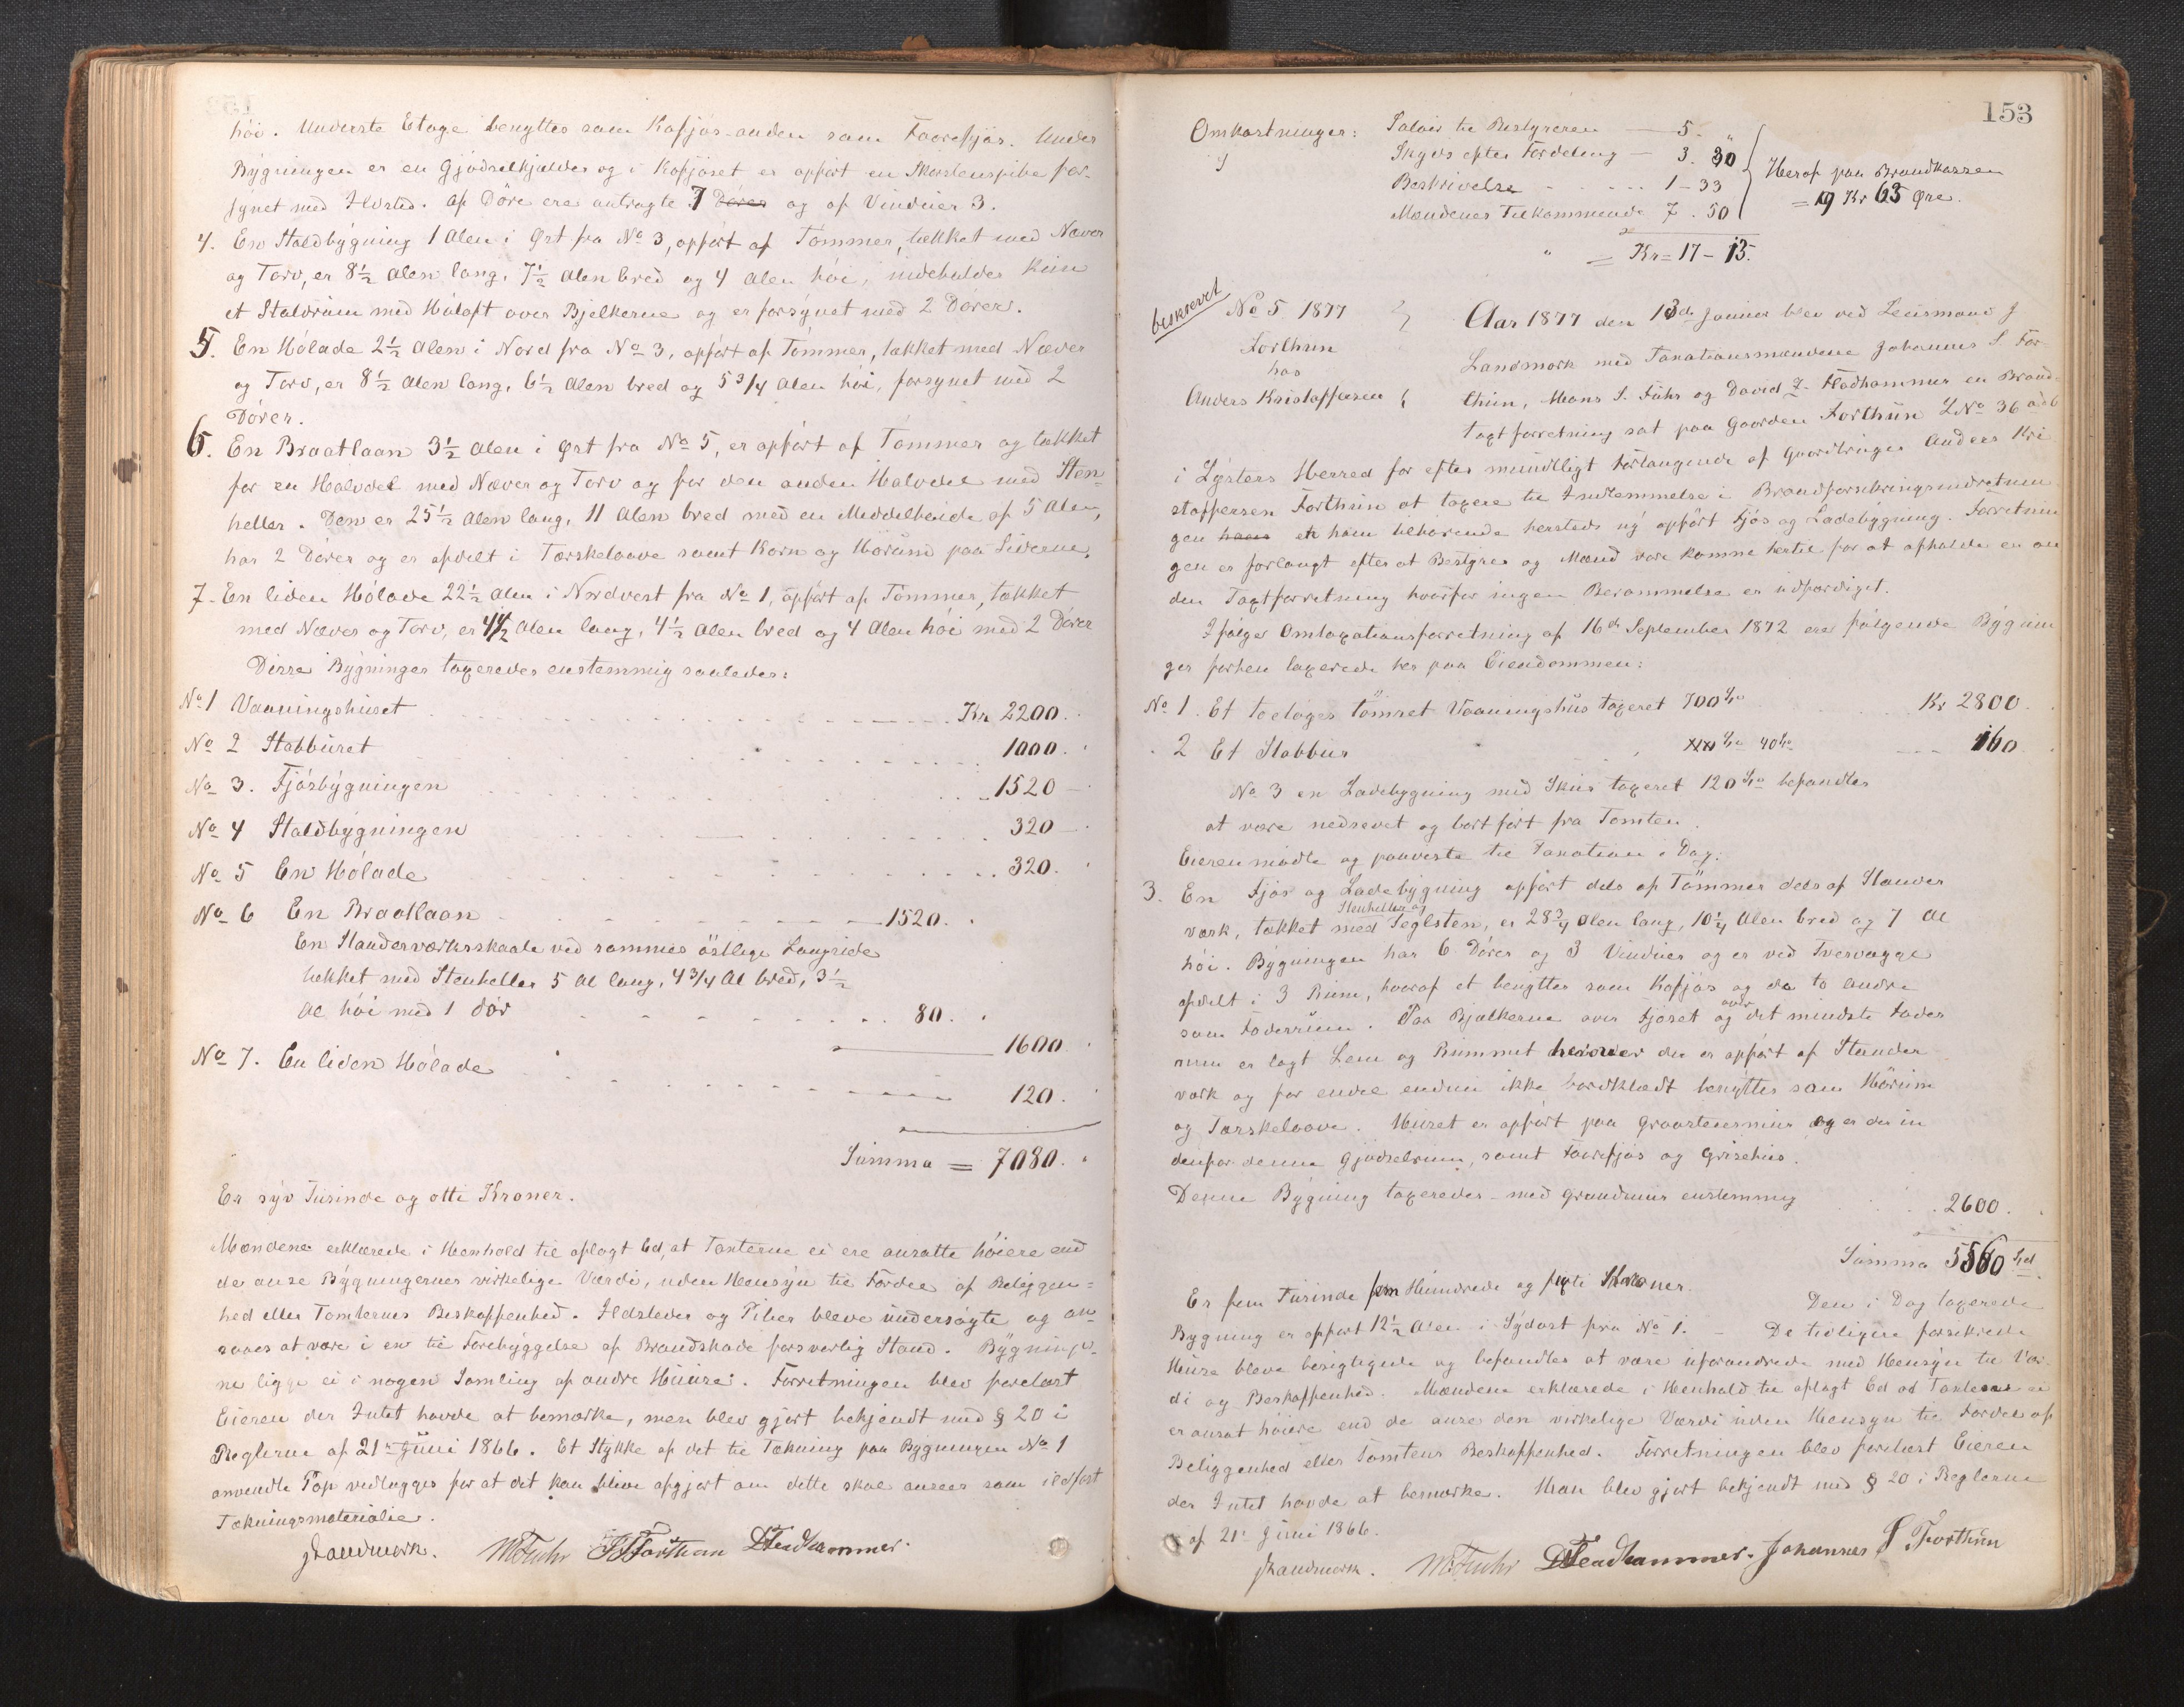 høi. Underste Etage benyttes som Kofjøs-anden som Faarefjøs. Under
Bygningen er en Gjødselkjælder og i Kofjøset er opført en Skorstenspibe for-
synet med Ildsted. Af Døre ere antragte 7 Dører og af Vinduer 3.
4. En Staldbygning 1 Alen i Øst fra No 3, opført af Tømmer, tækket med Næver
og Torv, er 8 1/2 Alen lang, 7 1/2 Alen bred og 4 Alen høi, indeholder kun
et Staldrum med Høloft over Bjelkerne og er forsynet med 2 Dører.
5. En Hølade 2 1/2 Alen i Nord fra No 3, opført af Tømmer, tækket med Næver
og Torv, er 8 1/2 Alen lang, 6 1/2 Alen bred og 5 3/4 Alen høi, forsynet med 2
Dører.
6. En Braatlaan 3 1/2 Alen i Øst fra No 5, er opført af Tømmer og tækket
for en Halvdel med Næver og Torv og for den anden Halvdel med Sten-
heller. Den er 25 1/2 Alen lang, 11 Alen bred med en Middelhøide af 5 Alen,
har 2 Dører og er afdelt i Tærskelaave samt Korn og Hørum paa Siderne.
7- En liden Hølade 22 1/2 Alen i Nordvest fra No 1, opført af Tømmer, tækket
med Næver og Torv, er 4 1/2 Alen lang, 4 1/2 Alen bred og 4 Alen høi med 2 Dører
Disse Bygninger taxeredes enstemmig saaledes:
No 1 Vaaningshuset Kr 2200.
No 2 Stabburet 1000.
No 3. Fjøsbygningen 1520
No 4 Staldbygningen 320
No 5 En Hølade 320.
No 6 En Braatlaan 1520.
En Standerværksskaale ved sammes østlige Langside
tækket med Stenheller 5 Al lang, 4 3/4 Al bred, 3 1/2
Al høi med 1 Dør 80.
1600
No 7. En liden Hølade
120.
Summa = 7080.
Er syv Tusinde og otti Kroner.
Mændene erklærede i Henhold til aflagt Ed, at Taxterne ei ere ansatte høiere end
de anse Bygningernes virkelige Værdi, uden Hensyn til Fordel af Beliggen-
hed eller Tomternes Beskaffenhed. Ildsteder og Piber bleve undersøgte og an-
saaes at være i en til Forebyggelse af Brandskade forsvarlig Stand. Bygninger-
ne ligge ei i nogen Samling af andre Huuse. Forretningen blev forelæst
Eieren der Intet havde at bemærke, men blev gjort bekjendt med § 20 i
Reglerne af 21de Juni 1866. Et Stykke af det til Tækning paa Bygningen No 1
anvendte Pap vedlægges for at det kan blive afgjort om dette skal ansees som ildfast
Tækningsmateriale.
JLandmark. MFuhr JSForthun DFladhammer.
153
Omkostninger: Salair til Bestyreren 5. "
Skyds efter Fordeling 3. 30
Beskrivelse 1-33
Mændenes Tilkommende 7. 50
Heraf paa Brandkassen
= 19 Kr 63 Øre.
= Kr = 17 - 13.
beskrevet
No 5 1877
Forthun
hos
Anders Kristoffersen
Aar 1877 den 13de Januar blev ved Lensmand J
Landmark med Taxationsmændene Johannes S For-
thun, Mons S. Fuhr og David J. Fladhammer en Brand-
taxtforretning sat paa Gaarden Forthun LNo 36 a & b
i Lysters Herred for efter mundtligt Forlangende af Gaardbruger Anders Kri
stoffersen Forthun at taxere til Indlemmelse i Brandforsikringsindretnin-
gen et ham tilhørende hersteds ny opført Fjøs og Ladebygning. Forretnin
gen er forlangt efter at Bestyrer og Mænd vare komne hertil for at afholde en an
den Taxtforretning hvorfor ingen Berammelse er udfærdiget.
Ifølge Omtaxationsforretning af 16de September 1872 ere følgende Bygnin
ger forhen taxerede her paa Eiendommen:
No 1. Et toetages tømret Vaaningshus taxeret 700 Spd Kr 2800.
2 Et Stabbur 40 Spd 160
No 3 en Ladebygning med Skur taxeret 120 Spd befandtes
at være nedrevet og bortført fra Tomten.
Eieren mødte og paaviste til Taxation i Dag:
3. En Fjøs og Ladebygning opført dels af Tømmer dels af Stander
værk, tækket med Stenheller og Teglsten, er 28 3/4 Alen lang, 10 1/4 Alen bred og 7 Al
høi. Bygningen har 6 Dører og 3 Vinduer og er ved Tvervægge
afdelt i 3 Rum, hvoraf et benyttes som Kofjøs og de to andre
som Foderrum. Paa Bjælkerne over Fjøset og over det mindste Foder
rum er lagt Lem og Rummet herover der er opført af Stander
værk og for endel endnu ikke bordklædt benyttes som Hørum
og Tærskelaave. Huset er opført paa Graastensmur og er der in
denfor denne Gjødselrum, samt Faarefjøs og Grisehus.
Denne Bygning taxeredes med Grundmur enstemmig 2600.
Summa 5560
Er fem Tusinde fem Hundrede og sexti Kroner. Den i Dag taxerede
Bygning er opført 12 1/2 Alen i Sydost fra No 1. - De tidligere forsikrede
Huse bleve besigtigede og befandtes at være uforandrede med Hensyn til Vær-
di og Beskaffenhed. Mændene erklærede i Henhold til aflagt Ed at Taxten ei
er ansat høiere end de anse den virkelige Værdi uden Hensyn til Fordel af
Beliggenhed eller Tomtens Beskaffenhed. Forretningen blev forelæst Eieren
der Intet havde at bemærke. Han blev gjort bekjendt med § 20 i Reglerne
af 21de Juni 1866.
JLandmark. MFuhr DFladhammer. Johannes S Forthun